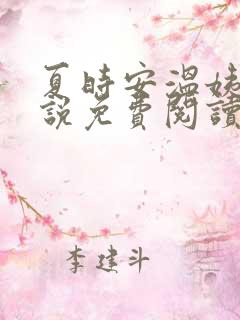 夏時安溫姨
說免費閱讀
李建斗